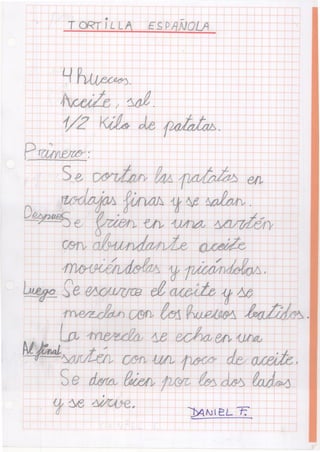 TORTILLA ESPAÑOLA
4 huevos.
Aceite, sal.
1/2 Kilo de patatas.
Primero:
Se cortan las patatas en
rodajas finas y se salan.
Después Se frien en una sartén
con abundante aceite
moviéndolas y picándolas.
Luego Se escurre el aceite y se
mezclan con los huevos batidos.
La mezcla se echa en una
Al final sartén con un poco de aceite.
Se dora bien por los dos lados
y se sirve.
DANIEL F.